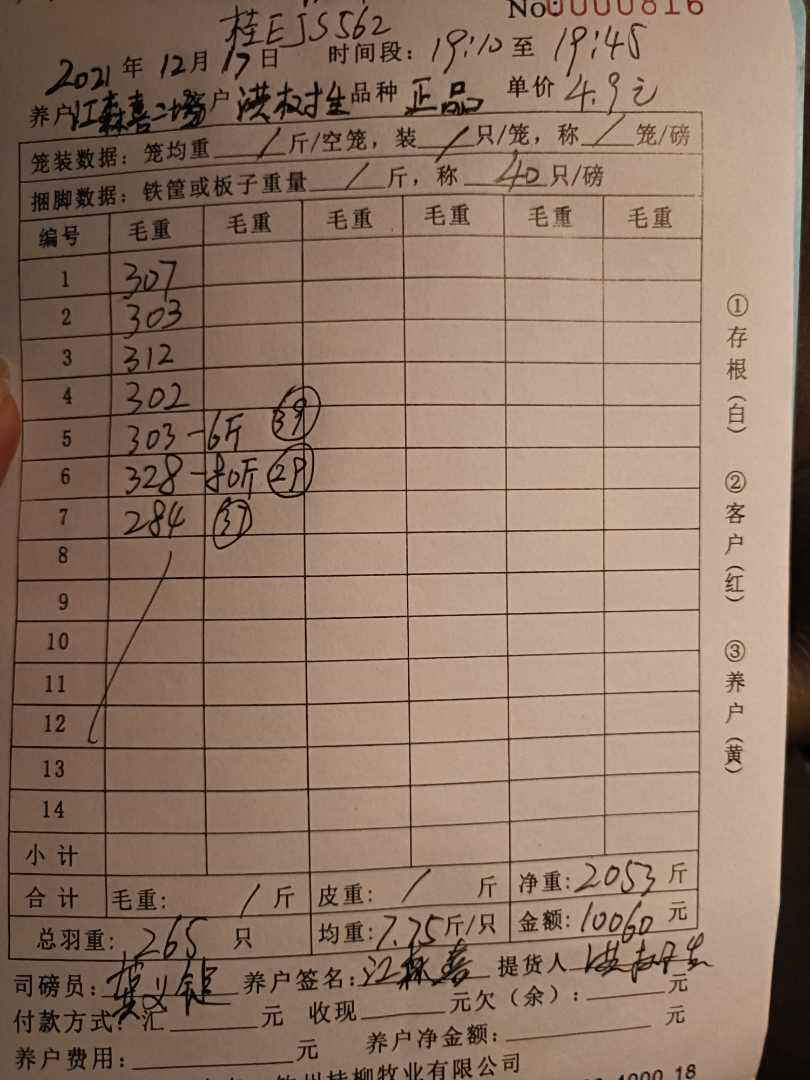 桂EJS562
No:0000816
2021年12月17日 时间段:19:10至19:45
养户江森喜二场客户洪权才生品种正品 单价4.9元
笼装数据:笼均重/斤/空笼,装/只/笼,称/笼/磅
捆脚数据:铁筐或板子重量/斤,称40只/磅
编号 毛重 毛重 毛重 毛重 毛重 毛重
1 307
2 303
3 312
4 302
5 303-6斤 39
6 328-80斤 29
7 284 37
8
9
10
11
12
13
14
小计
合计 毛重:/斤 皮重:/斤 净重:2053斤
总羽重:265只 均重:7.75斤/只 金额:10060元
司磅员: 养户签名:江森喜 提货人
付款方式:汇 元 收现 元欠(余): 元
养户费用: 元 养户净金额: 元
钦州桂柳牧业有限公司
①存根(白) ②客户(红) ③养户(黄)